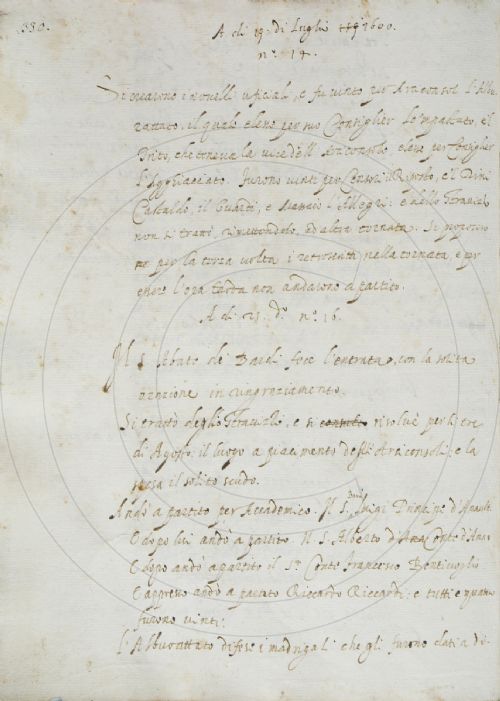 330.
A di 19. di Luglio 1600.
n.º 17.
Si crearono i novelli ufiziali, e fu vinto per Arciconsolo l'Abbu
rattato, il quale elesse per suo Consiglier lo 'mpastato, e 'l
Trito, che teneva la vice dell' Arciconsolo, elesse per Consiglier
furono vinti per Censori il Riposto, e 'l Rini
Castaldo, il Guardi, e l'Allegri: e dello
non si trattò, rimettendolo ad altra tornata. Si proposero
per la terza volta i nella tornata, e per
essere l'ora tarda non andarono a partito.
A di 21. dº. nº. 18.
Il S. Abate de' Bardi fece l'entrata, con la solita
orazione in ringraziamento.
Si trattò dello Stravizzo, e si risolvé per li tre
di Agosto: il luogo a piacimento dell' Arciconsolo: e la
spesa il solito scudo.
Andò a partito per Accademico. Il S. Don Luigi Principe d'
E dopo lui andò a partito Il S. Alberto Conte d'
E dopo andò a partito il S. Conte Francesco Bentivoglio
E appresso andò a partito Riccardo Riccardi: e tutti e quattro
furono vinti.
L'Abburattato difese i madrigali che gli furono dati a di-